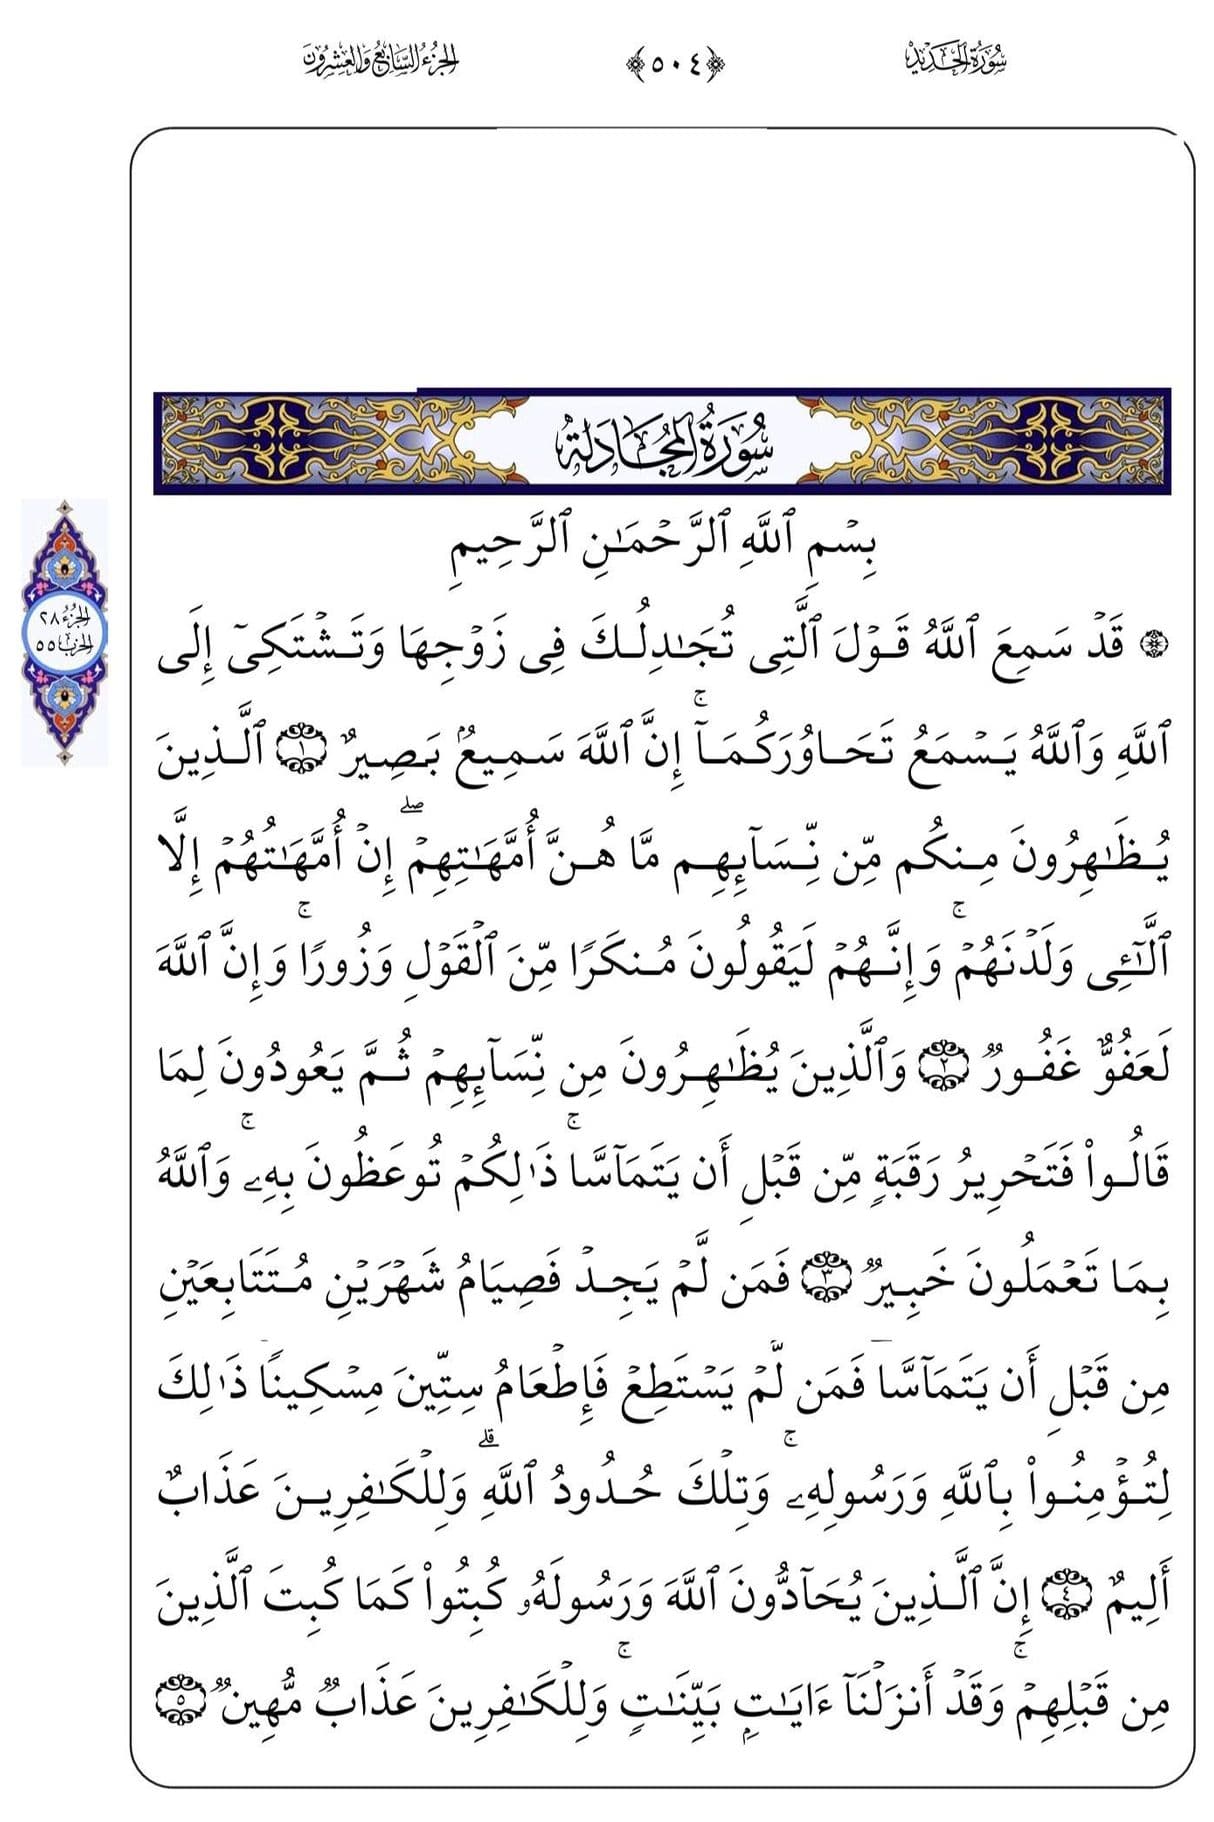 سُورَةُ الحَدِيدِ
﴿٥٠٤﴾
الجُزْءُ السَّابِعُ وَالعِشْرُونَ
سُورَةُ المُجَادلَةِ
بِسْمِ ٱللَّهِ ٱلرَّحْمَـٰنِ ٱلرَّحِيمِ
۞ قَدْ سَمِعَ ٱللَّهُ قَوْلَ ٱلَّتِى تُجَـٰدِلُكَ فِى زَوْجِهَا وَتَشْتَكِىٓ إِلَى
ٱللَّهِ وَٱللَّهُ يَسْمَعُ تَحَاوُرَكُمَآ ۚ إِنَّ ٱللَّهَ سَمِيعٌۢ بَصِيرٌ ١ ٱلَّذِينَ
يُظَـٰهِرُونَ مِنكُم مِّن نِّسَآئِهِم مَّا هُنَّ أُمَّهَـٰتِهِمْ ۖ إِنْ أُمَّهَـٰتُهُمْ إِلَّا
ٱلَّـٰٓـِٔى وَلَدْنَهُمْ ۚ وَإِنَّهُمْ لَيَقُولُونَ مُنكَرًا مِّنَ ٱلْقَوْلِ وَزُورًا ۚ وَإِنَّ ٱللَّهَ
لَعَفُوٌّ غَفُورٌ ٢ وَٱلَّذِينَ يُظَـٰهِرُونَ مِن نِّسَآئِهِمْ ثُمَّ يَعُودُونَ لِمَا
قَالُوا۟ فَتَحْرِيرُ رَقَبَةٍ مِّن قَبْلِ أَن يَتَمَآسَّا ۚ ذَٰلِكُمْ تُوعَظُونَ بِهِۦ ۚ وَٱللَّهُ
بِمَا تَعْمَلُونَ خَبِيرٌ ٣ فَمَن لَّمْ يَجِدْ فَصِيَامُ شَهْرَيْنِ مُتَتَابِعَيْنِ
مِن قَبْلِ أَن يَتَمَآسَّا فَمَن لَّمْ يَسْتَطِعْ فَإِطْعَامُ سِتِّينَ مِسْكِينًا ذَٰلِكَ
لِتُؤْمِنُوا۟ بِٱللَّهِ وَرَسُولِهِۦ ۚ وَتِلْكَ حُدُودُ ٱللَّهِ ۗ وَلِلْكَـٰفِرِينَ عَذَابٌ
أَلِيمٌ ٤ إِنَّ ٱلَّذِينَ يُحَآدُّونَ ٱللَّهَ وَرَسُولَهُۥ كُبِتُوا۟ كَمَا كُبِتَ ٱلَّذِينَ
مِن قَبْلِهِمْ ۚ وَقَدْ أَنزَلْنَآ ءَايَـٰتٍۭ بَيِّنَـٰتٍ ۚ وَلِلْكَـٰفِرِينَ عَذَابٌ مُّهِينٌ ٥
الجُزْءُ ٢٨
الحزب ٥٥